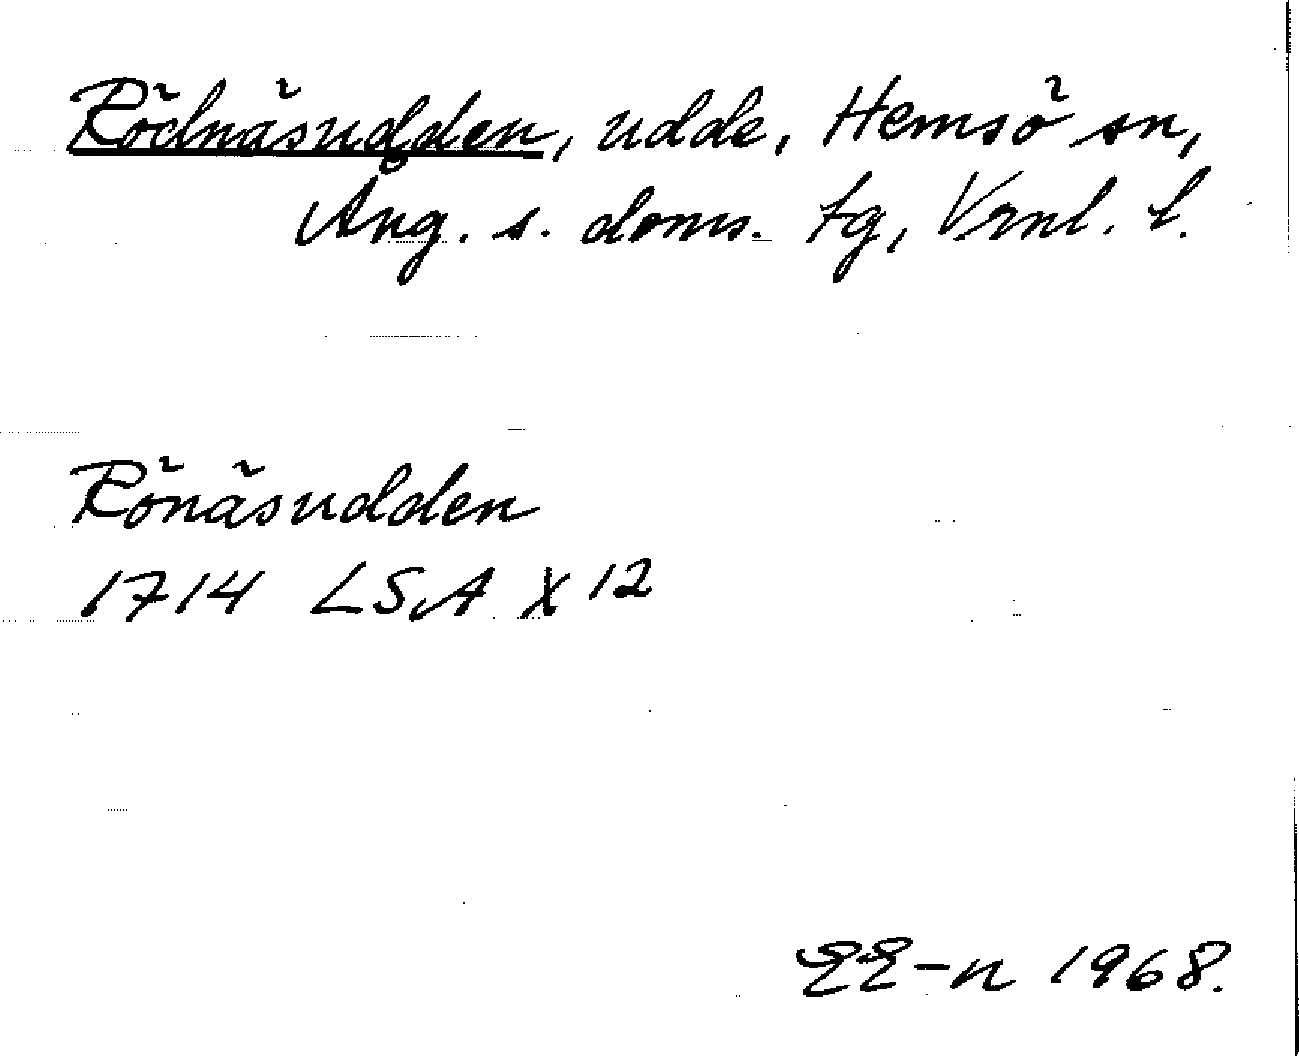 Rödnäsudden, udde, Hemsö sn,
Ång. s. doms. tg, Vrnl. l.
Rönäsudden
1714 LSA X 12
EE-n 1968.